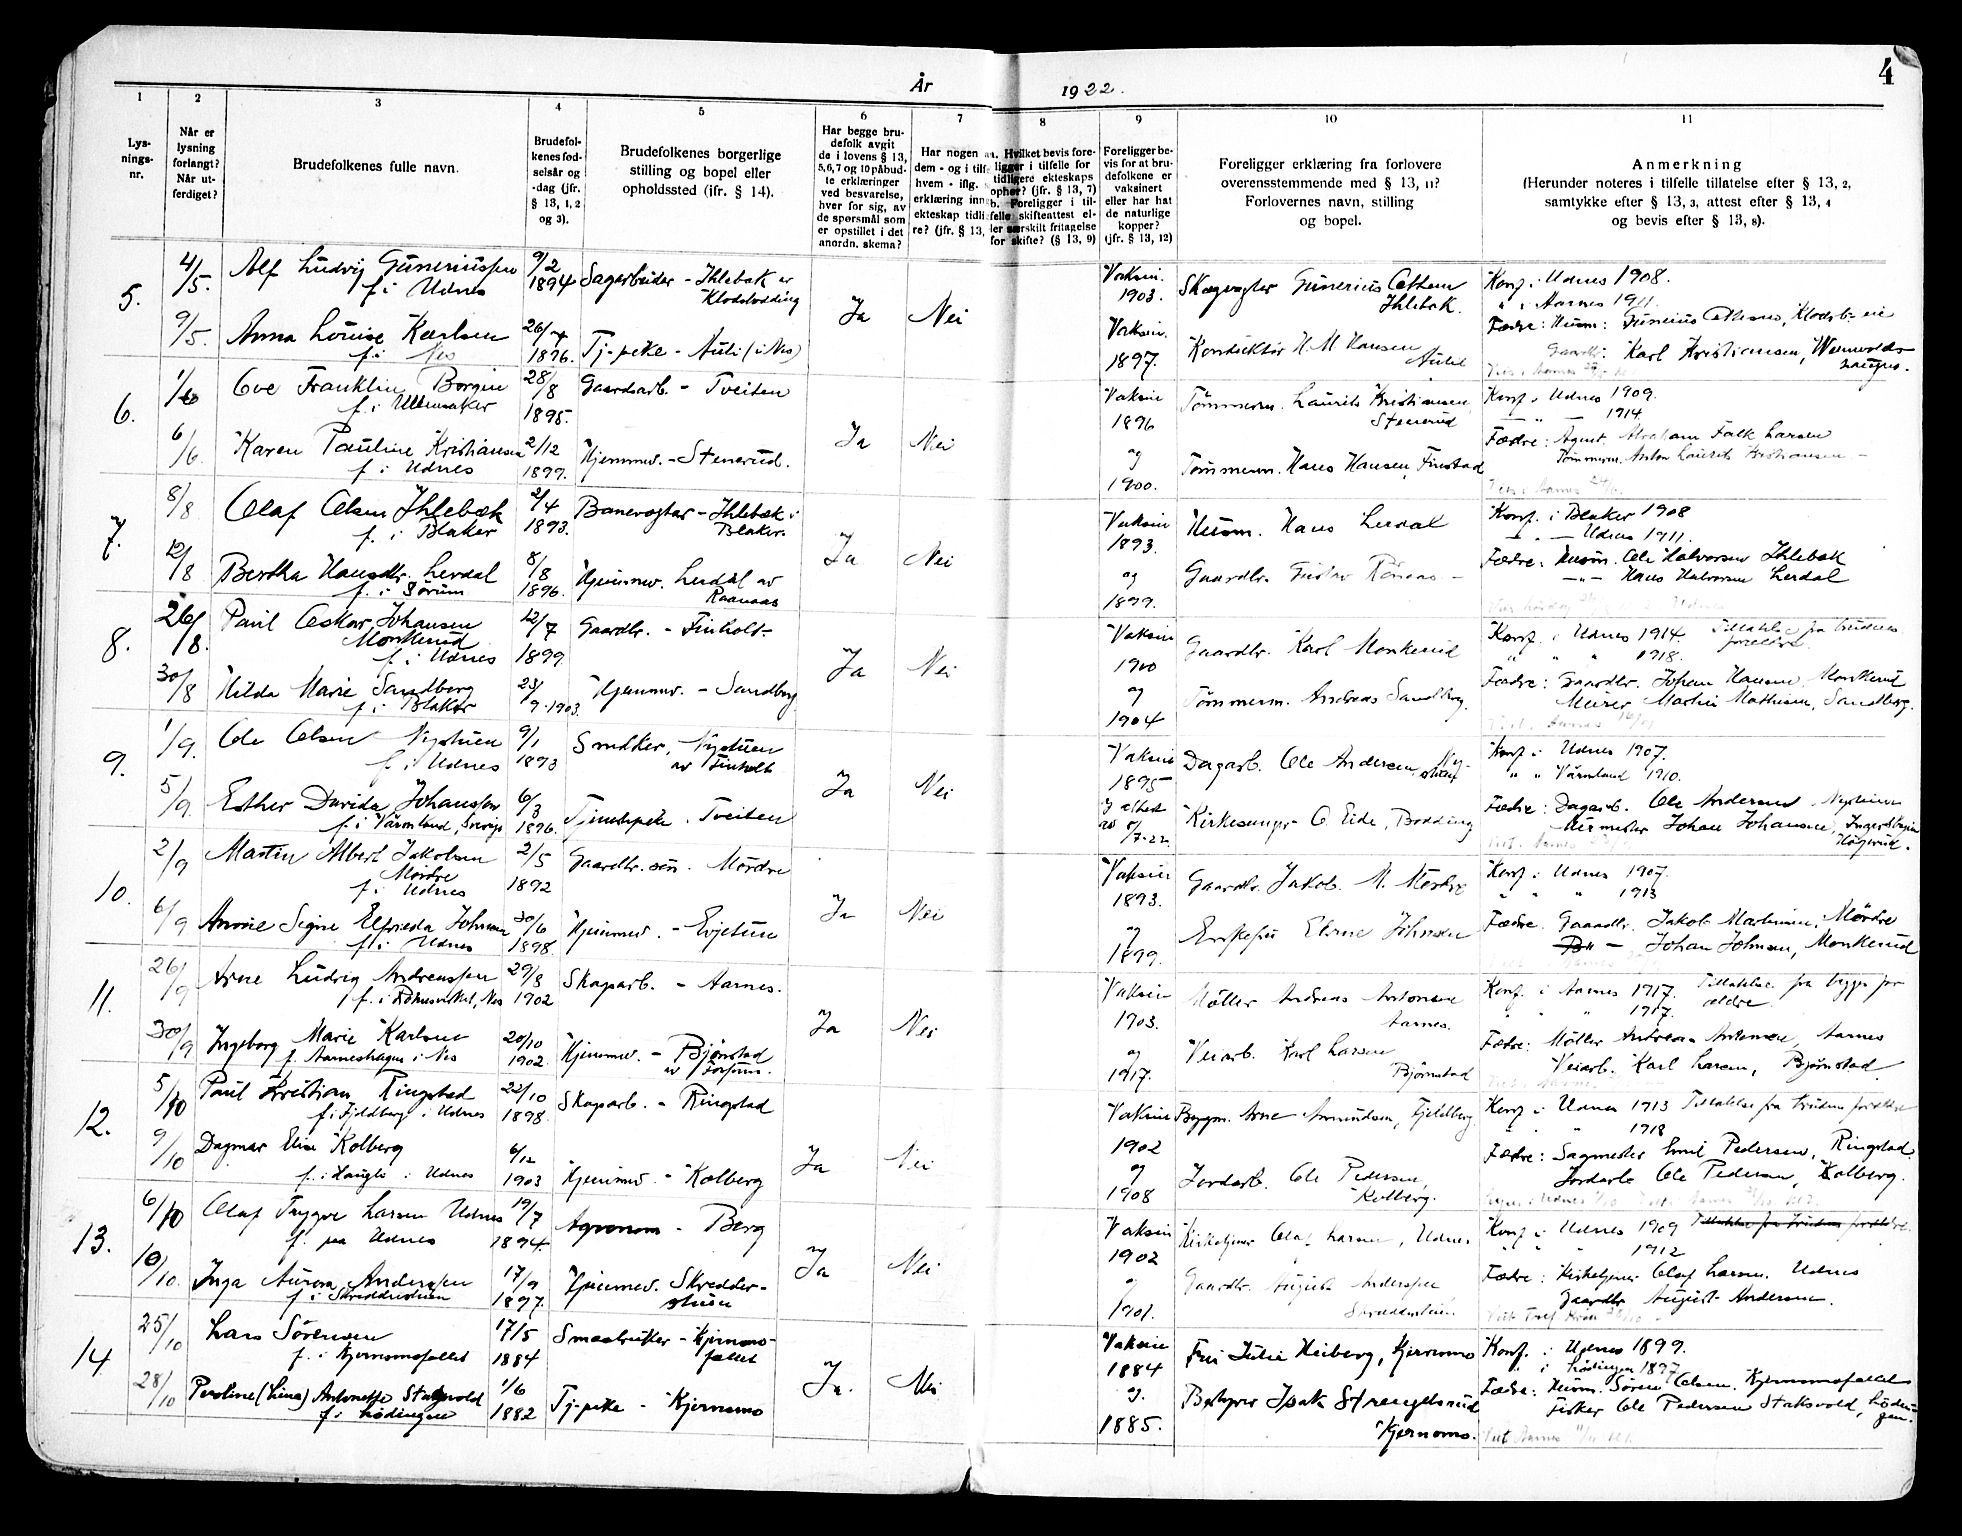 4
År 1922.
1 2 3 4 5 6 7 8 9 10 11
Lys-
nings-
nr.
Når er
lysning
forlangt?
Når ut-
ferdiget?
Brudefolkenes fulle navn.
Brudefol-
kenes fød-
selsår og
-dag (jfr.
§ 13, 1, 2
og 3).
Brudefolkenes borgerlige
stilling og bopel eller
opholdssted (ifr. § 14).
Har begge bru-
defolk avgit
de i lovens § 13,
5, 6, 7 og 10 påbud-
te erklæringer
ved besvarelse,
hver for sig, av
de spørsmål som
er opstillet i det
anordn. skema?
Har nogen a
dem - og i tilf
hvem - iflg.
erklæring inn
ekteskap tidli
re? (jfr. § 13,
a. Hvilket bevis fore-
ligger i tilfelle for
tidligere ekteskaps
ophør? (jfr. § 13, 7)
b. Foreligger i til-
felle skifteattest el-
ler særskilt fritagelse
for skifte? (§ 13, 9)
Foreligger be-
vis for at bru-
defolkene er
vaksinert
eller har hat
de naturlige
kopper?
(jfr. § 13, 12)
Foreligger erklæring fra forlovere
overensstemmende med § 13, 11?
Forlovernes navn, stilling
og bopel.
Anmerkning
(Herunder noteres i tilfelle tillatelse efter § 13, 2,
samtykke efter § 13, 3, attest efter § 13, 4
og bevis efter § 13, 8).
5.
4/5. Alf Ludvig Guneriussen 9/2 Sagarbeider - Ihlebæk av
f. i Udnes 1894 Klodsbødding
Ja Nei
Vaksin. 1903. Skogvogter Gunerius Olsen Ihlebæk.
Konf. i Udnes 1908.
" i Aarnes 1911.
9/5. Anna Louise Karlsen 26/4 Tj.pike - Auli (i Nes)
f. i Nes 1896.
Vaksin. 1897. Konduktør H. M. Hansen Aulie
Fædre: Husm: Gunerius
Gaardbr. Karl Kristiansen,
6.
1/6 Ove Franklin Borgin 28/8 Gaardsarb. - Tveiten
f. i Ullensaker 1895.
Ja Nei
Vaksin 1896 Tømmerm. Laurits Kristiansen Stenerud
Konf. i Udnes 1909.
- " - 1914.
6/6. Karen Pauline Kristiansen 2/12 Hjemmev. - Stenerud.
f. i Udnes 1899.
og 1900. Tømmerm. Hans Hansen, Finstad
Fædre: Agent. Abraham Falk Larsen
Tømmerm. Anton Laurits Kristiansen -
7.
8/8 Olaf Olsen Ihlebæk 2/4 Banevogter - Ihlebæk i
f. i Blaker 1893. Blaker.
Ja Nei
Vaksin 1893. Husm. Hans Lerdal
Konf. i Blaker 1908
- " - Udnes 1911.
12/8 Bertha Hansdtr. Lerdal 8/8 Hjemmev. Lerdal av
f. i Sørum 1896. Raanaas
og 1899. Gaardbr. Gustav Rånaas -
Fædre: Husm. Ole Halvorsen Ihlebæk
- " - Hans Halvorsen Lerdal
8.
26/8. Paul Oskar Johansen 12/7 Gaardbr. - Finholt-
Monkerud
f. i Udnes 1899.
Ja Nei
Vaksin 1900 Gaardbr. Karl Monkerud
Konf. i Udnes 1914. Tillatelse fra brudens
" " " 1918. forældre.
30/8 Hilda Marie Sandberg 23/9 1903. Hjemmev. - Sandberg
f. i Blaker
og 1904 Tømmerm. Andreas Sandberg.
Fædre: Gaardbr. Johan Hansen Monkerud
Murer Martin Mathisen, Sandberg.
9.
1/9. Ole Olsen Nystuen 9/1 Snedker, Nystuen
f. i Udnes 1893 av Finholt
Ja Nei
Vaksin 1895 Dagarb. Ole Andersen, Nystuen
Konf. i Udnes 1907.
" " Värmland 1910.
5/9. Esther Davida Johansson 6/3 Tjenestepike. Tveiten
f. i Värmland, Sverige 1896.
Kirkesanger O. Eide, Bodding
Fædre: Dagarb. Ole Andersen Nystuen
Murmester Johan Johansen,
10.
2/9 Martin Albert Jakobsen 2/5 Gaardbr. søn. Mørdre
Mørdre
f. i Udnes 1892
Ja Nei
Vaksin 1893. Gaardbr. Jakob M. Mørdre
Konf. i Udnes 1907.
" " 1913
6/9 Annie Signe Elfrieda Johnsen 30/6 Hjemmev. - Evjetun
f. i Udnes 1898.
og 1899. Enkefru Johnsen
Fædre. Gaardbr. Jakob Martinsen, Mørdre
" - Johan Johnsen, Monkerud
11.
26/9 Arne Ludvig Andreassen 29/8 Skoparb. - Aarnes.
f. i Nes 1902
Ja Nei
Vaksin 1903. Møller Andreas Antonsen Aarnes.
Konf. i Aarnes 1917. Tillatelse fra begges for
" " " 1917. ældre.
30/9 Ingeborg Marie Karlsen 20/10 Hjemmev. - Bjørnstad
f. Aarneshagen i Nes 1902.
og 1917. Veiarb. Karl Larsen Bjørnstad
Fædre: Møller Andreas Antonsen, Aarnes
Veiarb. Karl Larsen, Bjørnstad.
12.
5/10 Paul Kristian Ringstad 22/10 Skoparb. - Ringstad
f. i Fjeldberg i Udnes 1898.
Ja Nei
Vaksin 1902 Byggm. Arne Amundsen, Fjeldberg
Konf. i Udnes 1913 Tillatelse fra brudens forældre
" 1918
9/10 Dagmar Elise Kolberg 6/12 Hjemmev. - Kolberg
f. i Haugli i Udnes 1903
og 1908 Jordarb. Ole Pedersen, Kolberg.
Fædre: Sagmester Emil Pedersen, Ringstad.
Jordarb. Ole Pedersen, Kolberg.
13.
6/10 Olaf Trygve Larsen Udnes 19/7 Agronom - Berg
f. paa Udnes 1894.
Ja Nei
Vaksin 1902 Kirketjener Olaf Larsen, Udnes
Konf. i Udnes 1909 Tillatelse fra brudens forældre.
" " " 1912
10/10. Inga Aurora Anderssen 17/9 Hjemmev. Skredder-
f. i Skredderstuen 1897. stuen
og 1901. Gaardbr. August Anderssen Skredderstuen
Fædre: Kirketjener Olaf Larsen. Udnes
Gaardbr August Andersen.
14.
25/10 Lars Sørensen 17/5 Smaabruker - Kjernmo-
f. i Kjernmofallet 1884 fallet
Ja. Nei
Vaksin 1884 Fru Julie Heiberg, Kjernmo
Konf. i Udnes 1899.
" i Lødingen 1897
28/10 Peroline (Lina) Antonette Staksvold 1/6 Tj.pike - Kjernmo
f. i Lødingen 1882
og. 1885. Bestyrer Isak Strengelsrud Kjernmo.
Fædre: Husm. Søren Olsen. Kjernmofallet
Fisker Ole Pedersen Staksvold, Lødin-
gen.